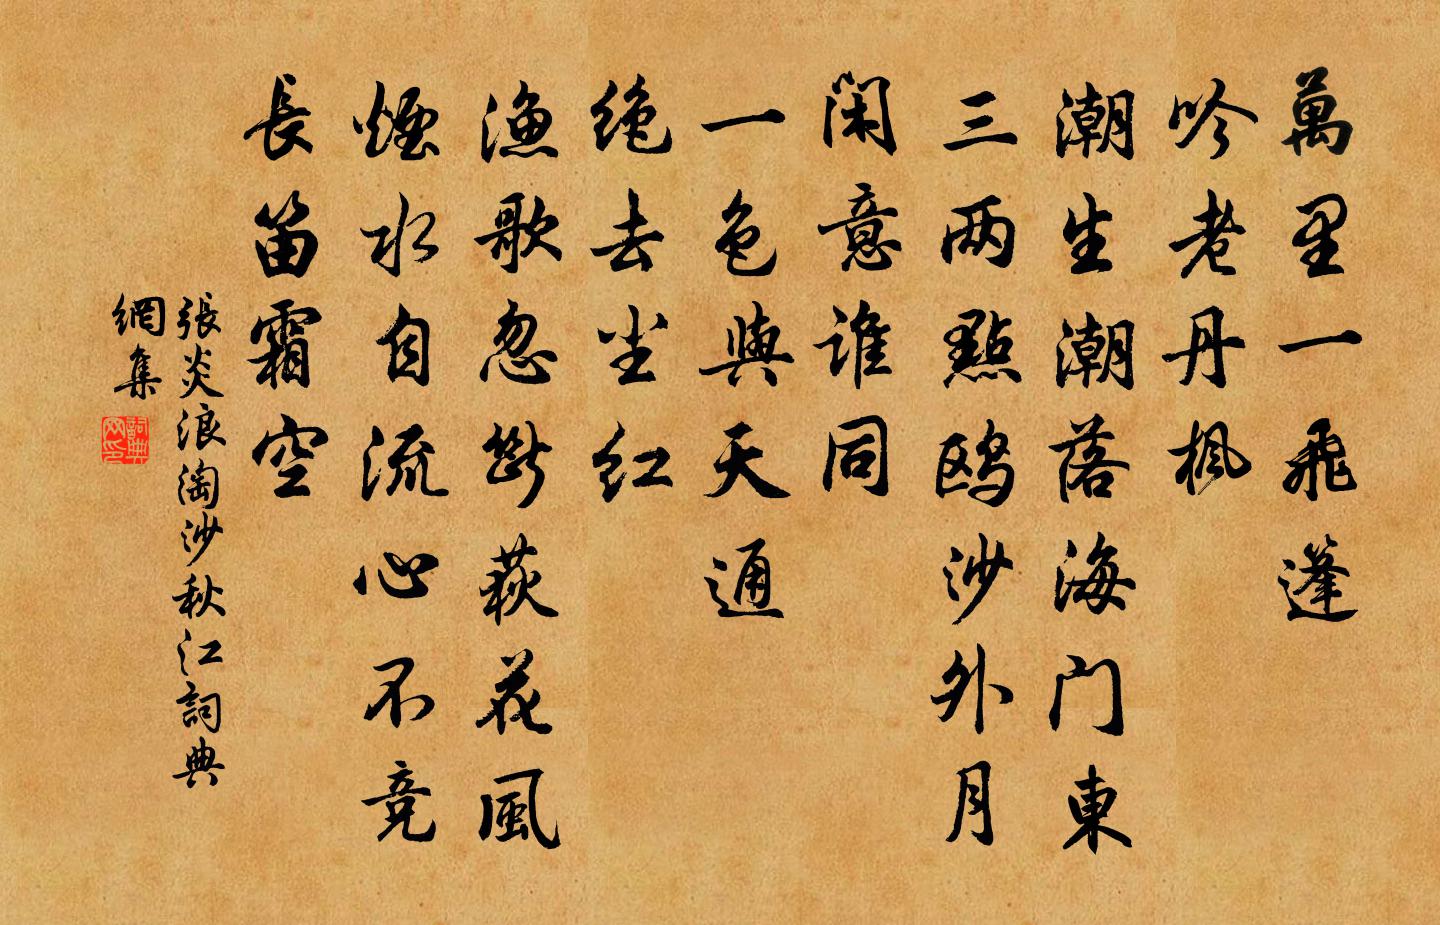 萬里一飛蓬
吟老丹楓
潮生潮落海门東
三两點鸥沙外月
闲意谁同
一色與天通
绝去尘红
渔歌忽断荻花風
煙水自流心不竞
長笛霜空
張炎浪淘沙秋江詞典
網集
詞典
网印